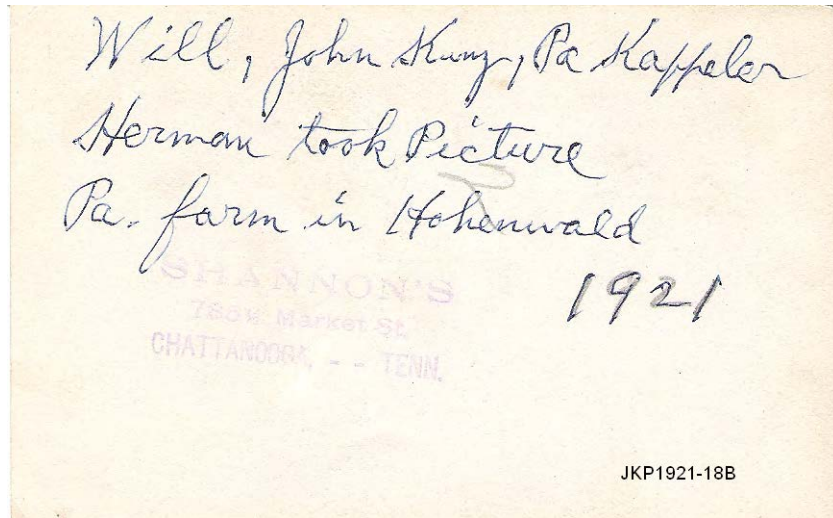 Will, John Kunz, Pa Kappeler
Herman took Picture
Pa. farm in Hohenwald
1921
SHANNON'S
Market St.
CHATTANOOGA, - - TENN.
JKP1921-18B